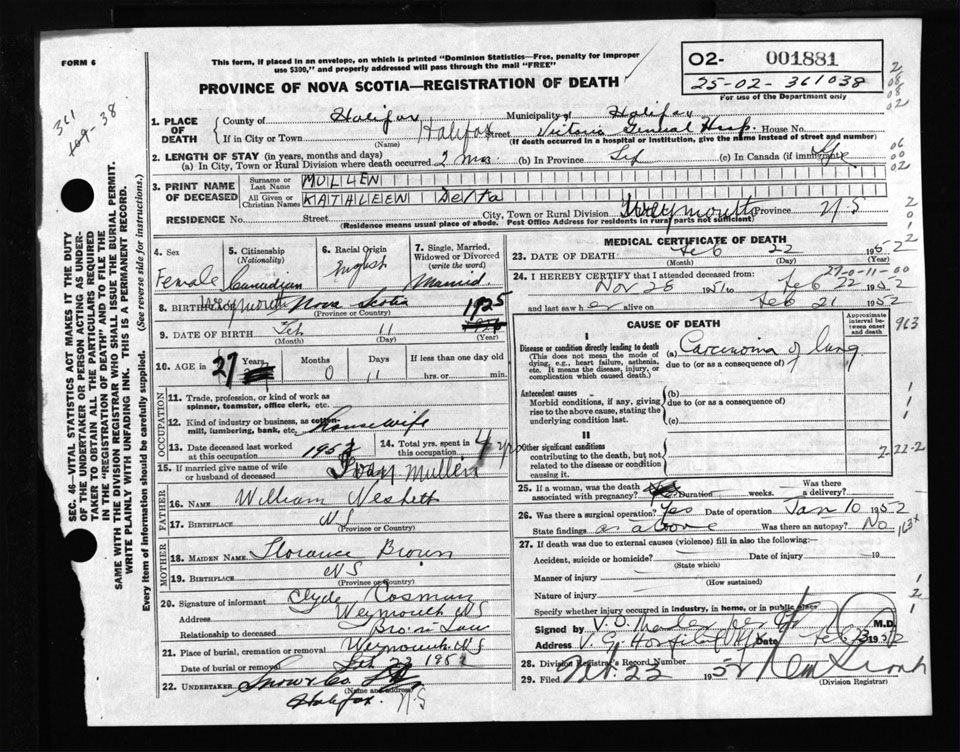 FORM 6
This form, if placed in an envelope, on which is printed "Dominion Statistics—Free, penalty for improper
use $300," and properly addressed will pass through the mail "FREE"
PROVINCE OF NOVA SCOTIA—REGISTRATION OF DEATH
02- 001881
25-02-361038
For use of the Department only
1. PLACE OF DEATH
County of Halifax Municipality of Halifax
If in City or Town Halifax Street Victoria General Hosp. House No.
(Name) (If death occurred in a hospital or institution, give the name instead of street and number)
2. LENGTH OF STAY (in years, months and days)
(a) In City, Town or Rural Division where death occurred 2 mos. (b) In Province Life (c) In Canada (if immigrant) Life
3. PRINT NAME OF DECEASED
Surname or Last Name MULLEN
All Given or Christian Names KATHLEEN Delta
RESIDENCE No. Street City, Town or Rural Division Weymouth Province N.S
(Residence means usual place of abode. Post Office Address for residents in rural parts not sufficient)
4. Sex Female
5. Citizenship (Nationality) Canadian
6. Racial Origin English
7. Single, Married, Widowed or Divorced (write the word) Married
8. BIRTHPLACE Weymouth Nova Scotia
(Province or Country)
9. DATE OF BIRTH Feb 11 1925
(Month) (Day) (Year)
10. AGE in 27 Years Months 0 Days 11 If less than one day old
hrs. or min.
OCCUPATION
11. Trade, profession, or kind of work as
spinner, teamster, office clerk, etc.
12. Kind of industry or business, as cotton-
mill, lumbering, bank, etc. Housewife
13. Date deceased last worked
at this occupation
14. Total yrs. spent in
this occupation 4 yrs
15. If married give name of wife
or husband of deceased Mullen
FATHER
16. NAME William Nesbett
17. BIRTHPLACE NS
(Province or Country)
MOTHER
18. MAIDEN NAME Florance Brown
19. BIRTHPLACE NS
(Province or Country)
20. Signature of informant Clyde Cosman
Address Weymouth NS
Relationship to deceased Bro in Law
21. Place of burial, cremation or removal Weymouth NS
Date of burial or removal Feb 23 1952
22. UNDERTAKER Snow & Co
(Name and address)
Halifax N.S
MEDICAL CERTIFICATE OF DEATH
23. DATE OF DEATH Feb 22 1952
(Month) (Day)
27-0-11-00
24. I HEREBY CERTIFY that I attended deceased from:
Nov 28 1951 to Feb 22 1952
and last saw her alive on Feb 21 1952
CAUSE OF DEATH
Approximate interval between onset and death
I
Disease or condition directly leading to death
(This does not mean the mode of dying, e.g., heart failure, asthenia, etc. It means the disease, injury, or complication which caused death.)
(a) Carcinoma of lung
due to (or as a consequence of)
Antecedent causes
Morbid conditions, if any, giving rise to the above cause, stating the underlying condition last
(b)
due to (or as a consequence of)
(c)
II
Other significant conditions
contributing to the death, but not related to the disease or condition causing it.
963
2-22-2
25. If a woman, was the death associated with pregnancy? Duration weeks. Was there a delivery?
26. Was there a surgical operation? Yes Date of operation Jan 10 1952
State findings as above Was there an autopsy? No
27. If death was due to external causes (violence) fill in also the following:
Accident, suicide or homicide? Date of injury 19
(State which)
Manner of injury
(How sustained)
Nature of injury
Specify whether injury occurred in industry, in home, or in public place
Signed by M.D.
Address V. G. Hospital Hfx Date Feb 1952
28. Division Registrar's Record Number
29. Filed 22 1952
(Division Registrar)
SEC. 46—VITAL STATISTICS ACT MAKES IT THE DUTY
OF THE UNDERTAKER OR PERSON ACTING AS UNDER-
TAKER TO OBTAIN ALL THE PARTICULARS REQUIRED
IN THE "REGISTRATION OF DEATH" AND TO FILE THE
SAME WITH THE DIVISION REGISTRAR WHO SHALL ISSUE THE BURIAL PERMIT.
WRITE PLAINLY WITH UNFADING INK. THIS IS A PERMANENT RECORD.
Every item of information should be carefully supplied. (See reverse side for instructions.)